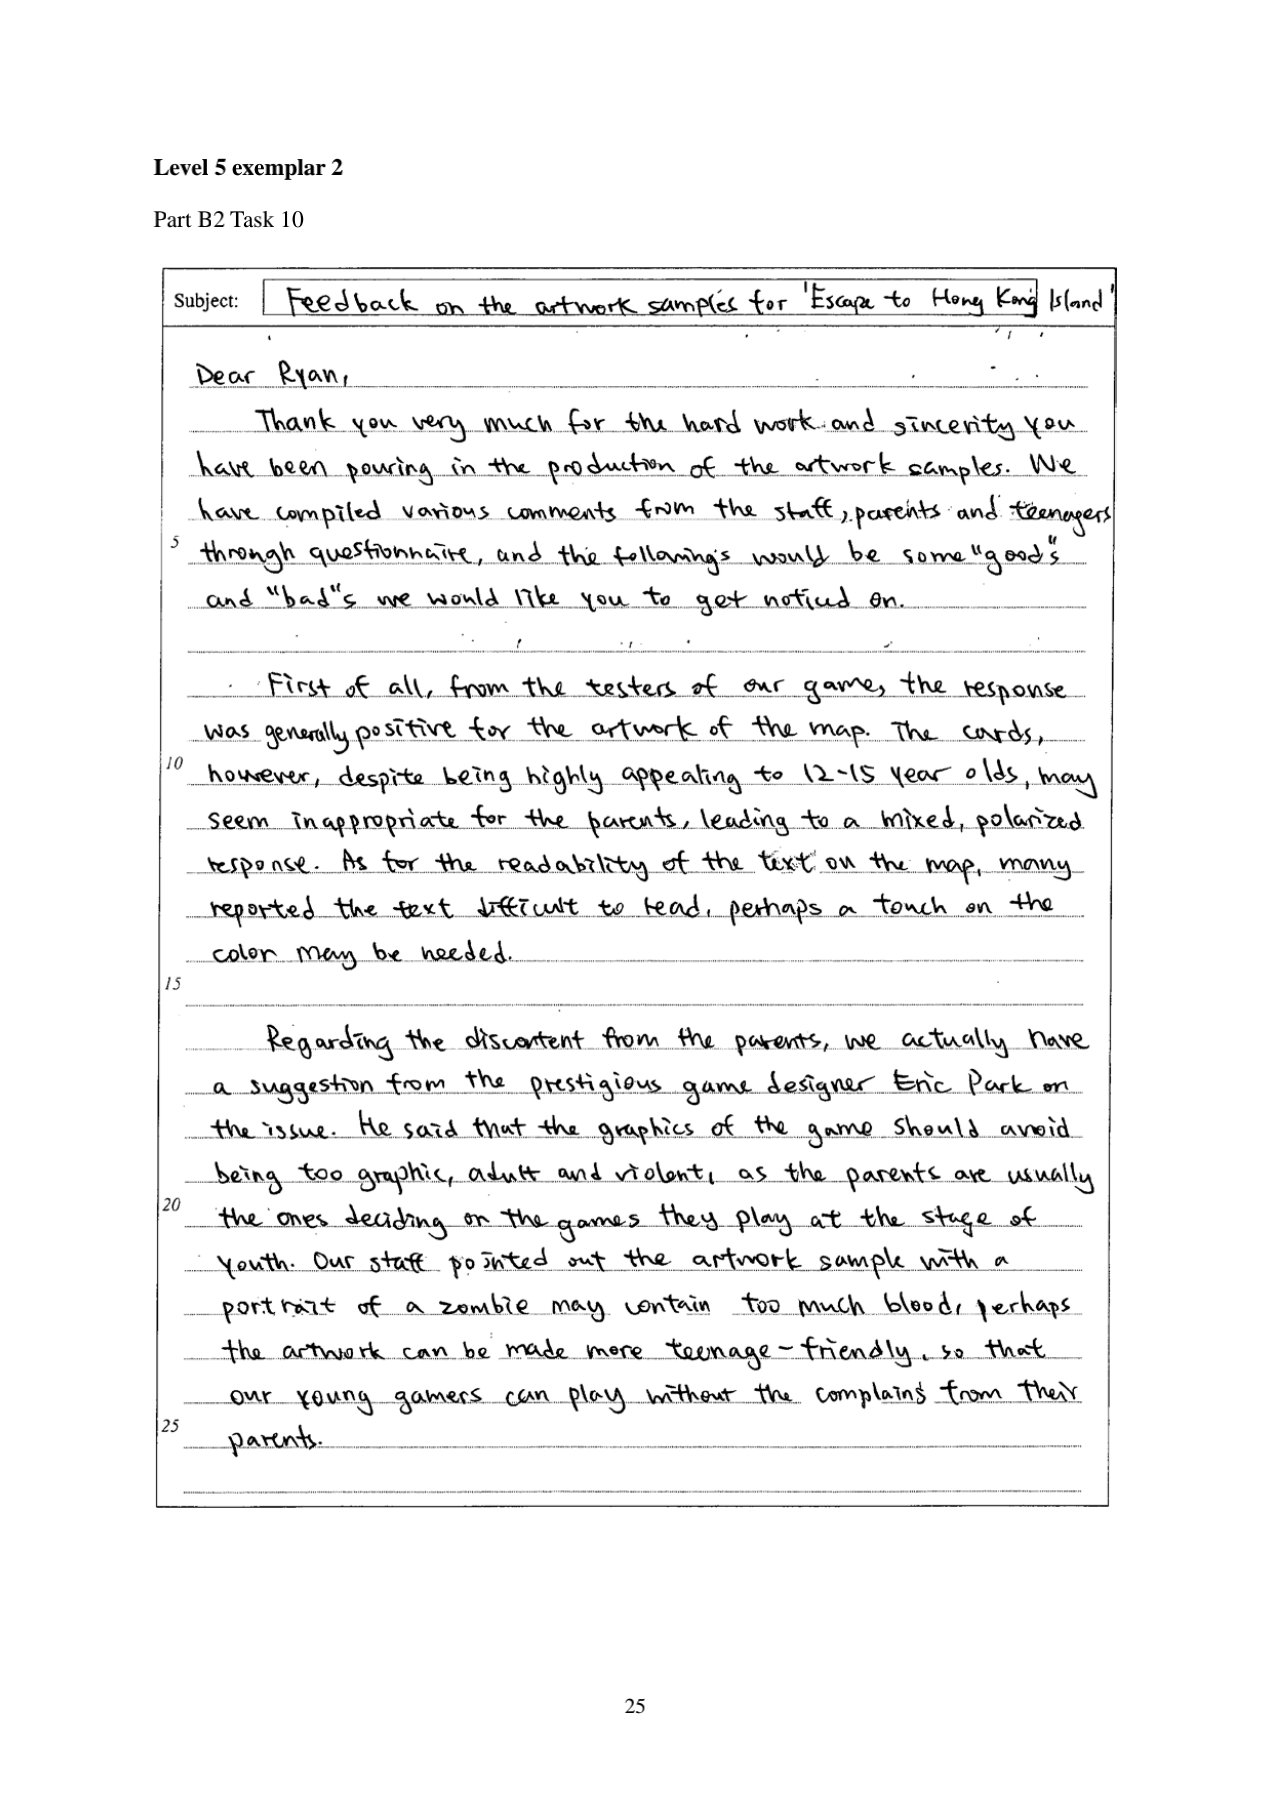 Level 5 exemplar 2
Part B2 Task 10
Subject: Feedback on the artwork samples for 'Escape to Hong Kong Island'
Dear Ryan,
Thank you very much for the hard work and sincerity you
have been pouring in the production of the artwork samples. We
have compiled various comments from the staff, parents and teenagers
5 through questionnaire, and the followings would be some "good"s
and "bad"s we would like you to get noticed on.
First of all, from the testers of our game, the response
was generally positive for the artwork of the map. The cards,
10 however, despite being highly appealing to 12-15 year olds, may
seem inappropriate for the parents, leading to a mixed, polarized
response. As for the readability of the text on the map, many
reported the text difficult to read, perhaps a touch on the
color may be needed.
15
Regarding the discontent from the parents, we actually have
a suggestion from the prestigious game designer Eric Park on
the issue. He said that the graphics of the game should avoid
being too graphic, adult and violent, as the parents are usually
20 the ones deciding on the games they play at the stage of
youth. Our staff pointed out the artwork sample with a
portrait of a zombie may contain too much blood, perhaps
the artwork can be made more teenage-friendly, so that
our young gamers can play without the complains from their
25 parents.
25